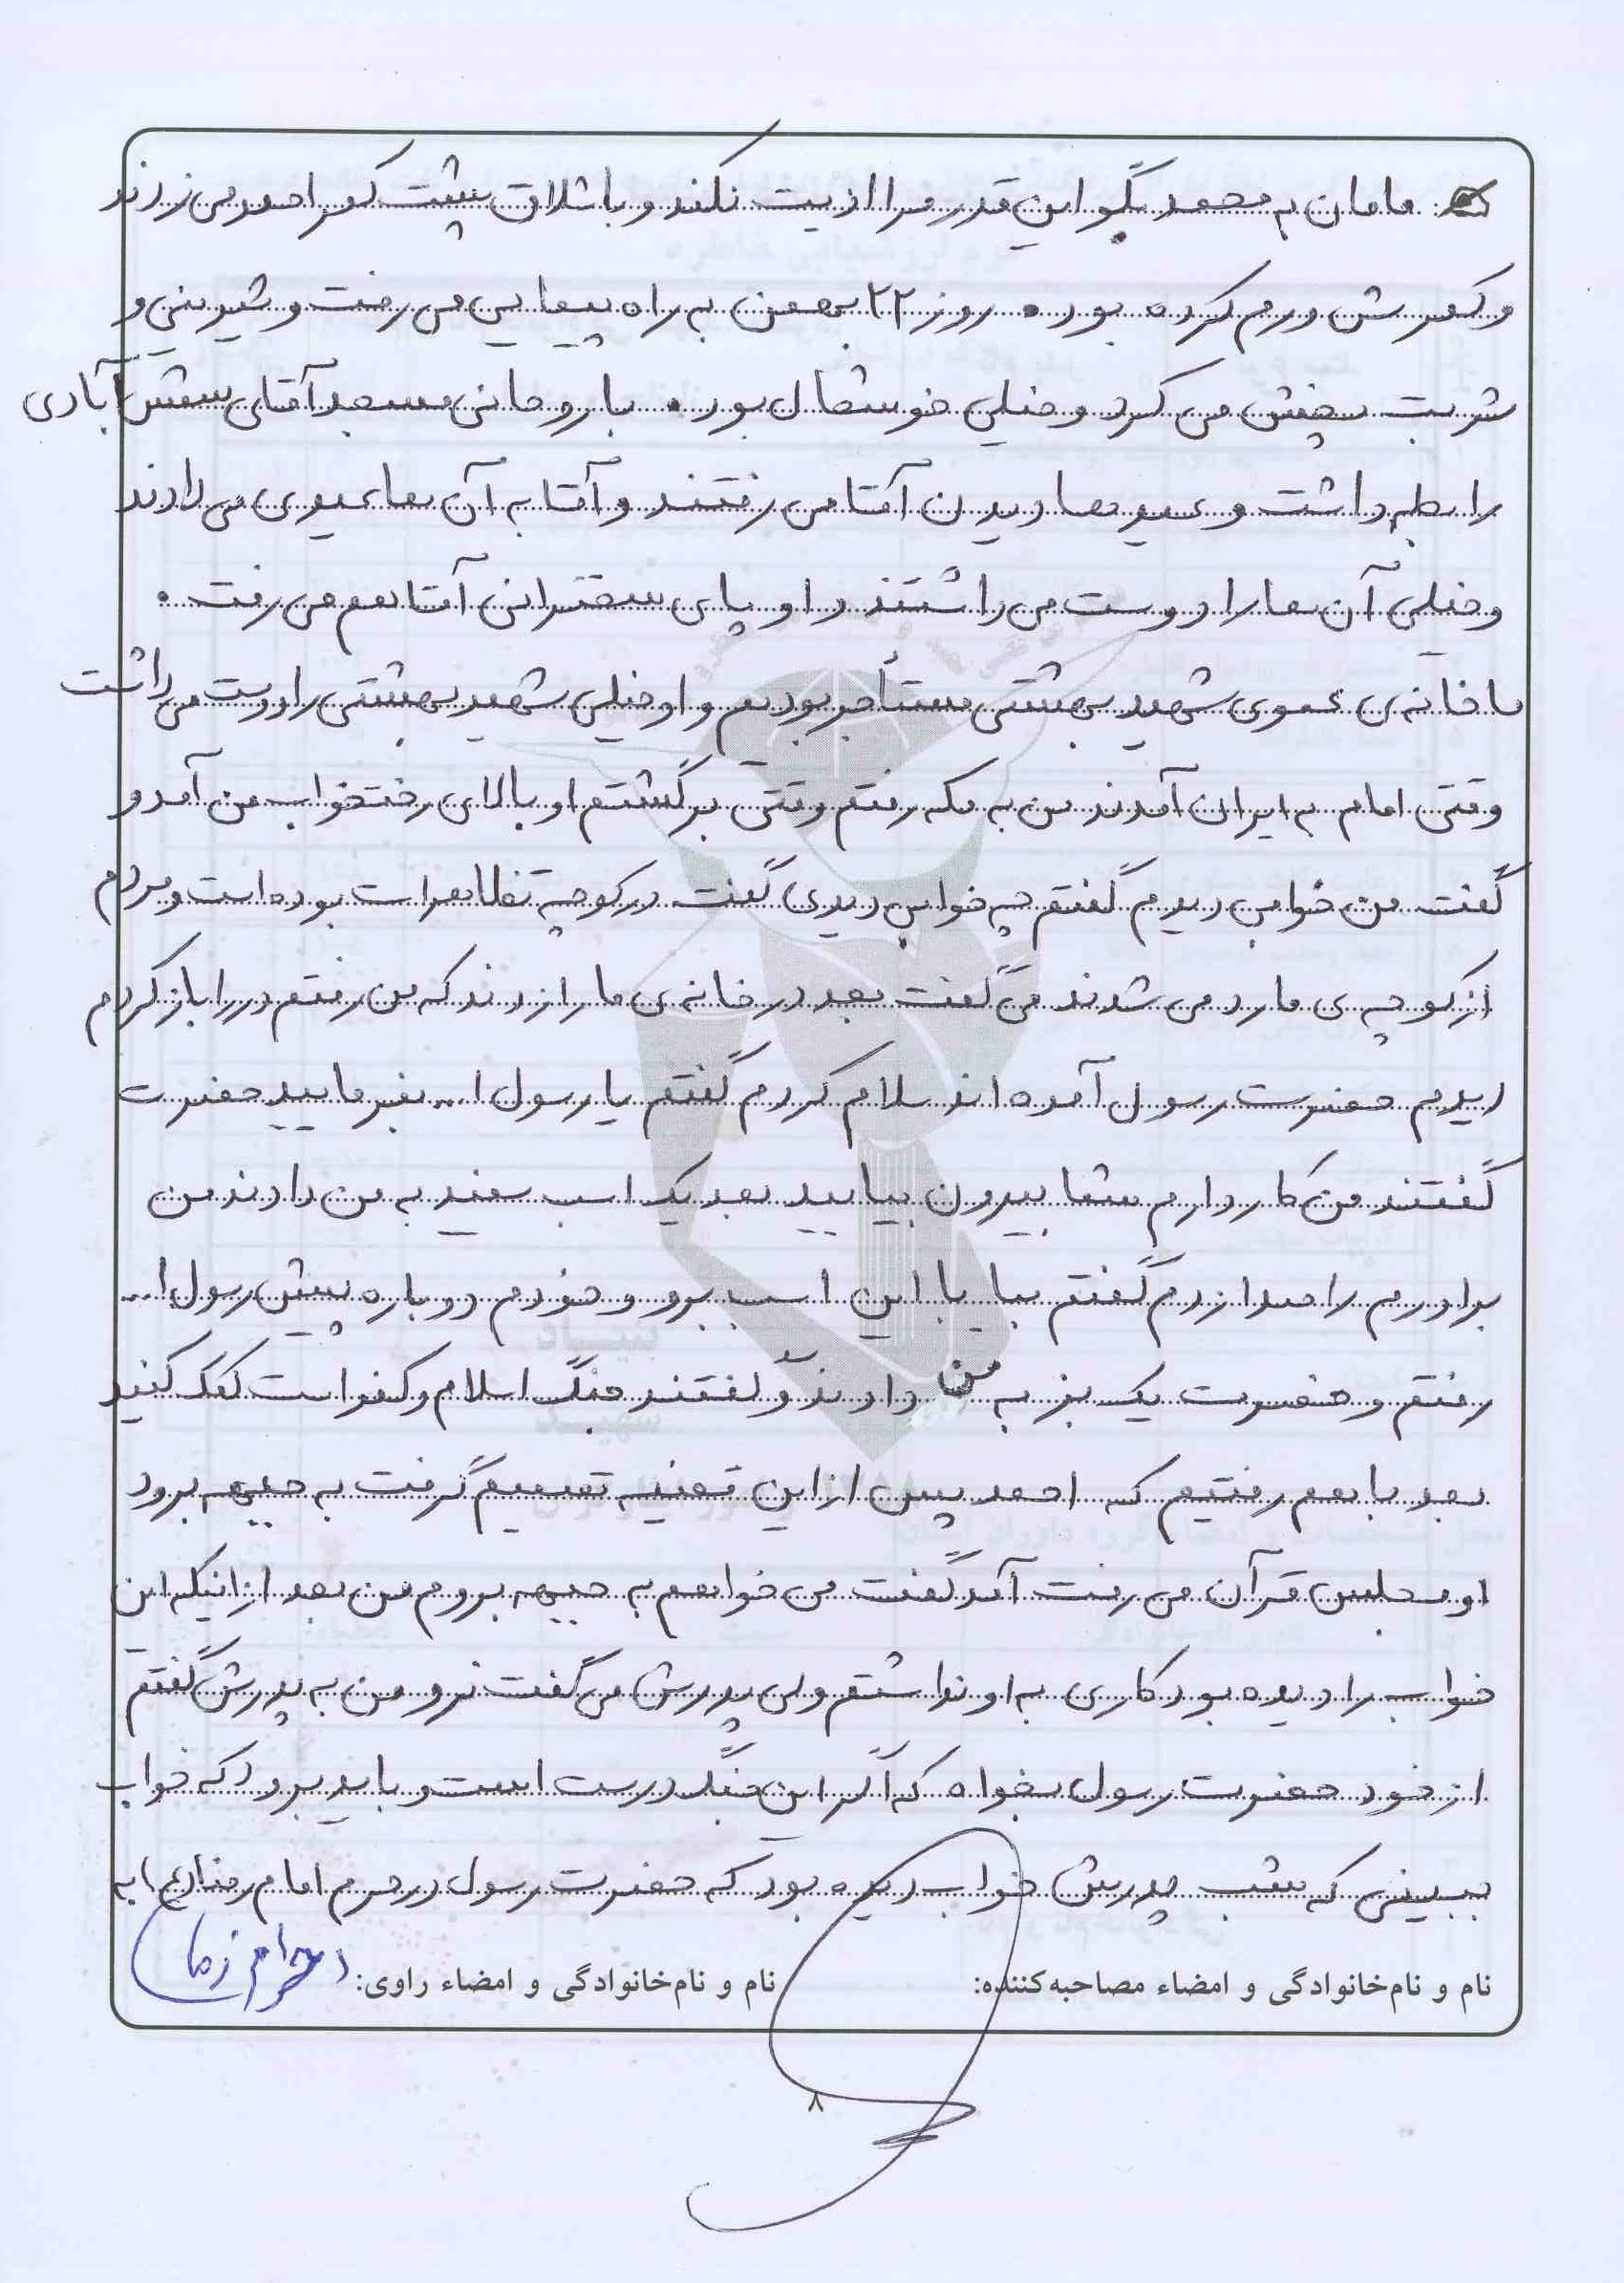 مامان به محمد بگو این قدر مرا اذیت نکند و با شلاق پشت کمر احمد می زدند
و کمرش ورم کرده بود. روز ۲۲ بهمن به راه پیمایی می رفت و شیرینی و
شربت پخش می کرد و خیلی خوشحال بود. با روحانی مسجد آقای شمس آبادی
رابطه داشت و عید ها دیدن آقا می رفتند و آقا به آن ها عیدی می دادند
و خیلی آن ها را دوست می داشتند و او پای سخنرانی آقا هم می رفت.
ما خانه ی عموی شهید بهشتی مستأجر بودیم و او خیلی شهید بهشتی را دوست می داشت
وقتی امام به ایران آمدند من به مکه رفتم وقتی برگشتم او بالای رختخواب من آمد و
گفت من خوابی دیدم گفتم چه خوابی دیدی گفت در کوچه تظاهرات بوده است و مردم
از کوچه ی ما رد می شدند می گفت بعد در خانه ی ما را زدند که من رفتم در را باز کردم
دیدم حضرت رسول آمده اند سلام کردم گفتم یا رسول ا... بفرمایید حضرت
گفتند من کار دارم شما بیرون بیایید بعد یک اسب سفید به من دادند من
برادرم را صدا زدم گفتم بیا با این اسب برو و خودم دوباره پیش رسول ا...
رفتم و حضرت یک بز به من دادند و گفتند جنگ اسلام و کفر است کمک کنید
بعد با هم رفتیم که احمد پس از این قضیه تصمیم گرفت به جبهه برود
او مجلس قرآن می رفت آمد گفت می خواهم به جبهه بروم من بعد از اینکه این
خواب را دیده بود کاری به او نداشتم ولی پدرش می گفت نرو من به پدرش گفتم
از خود حضرت رسول بخواه که اگر این جنگ درست است و باید برود که خواب
ببینی که شب پدرش خواب دیده بود که حضرت رسول در حرم امام رضا (ع) به
نام و نام‌خانوادگی و امضاء مصاحبه‌کننده: نام و نام‌خانوادگی و امضاء راوی:
۸